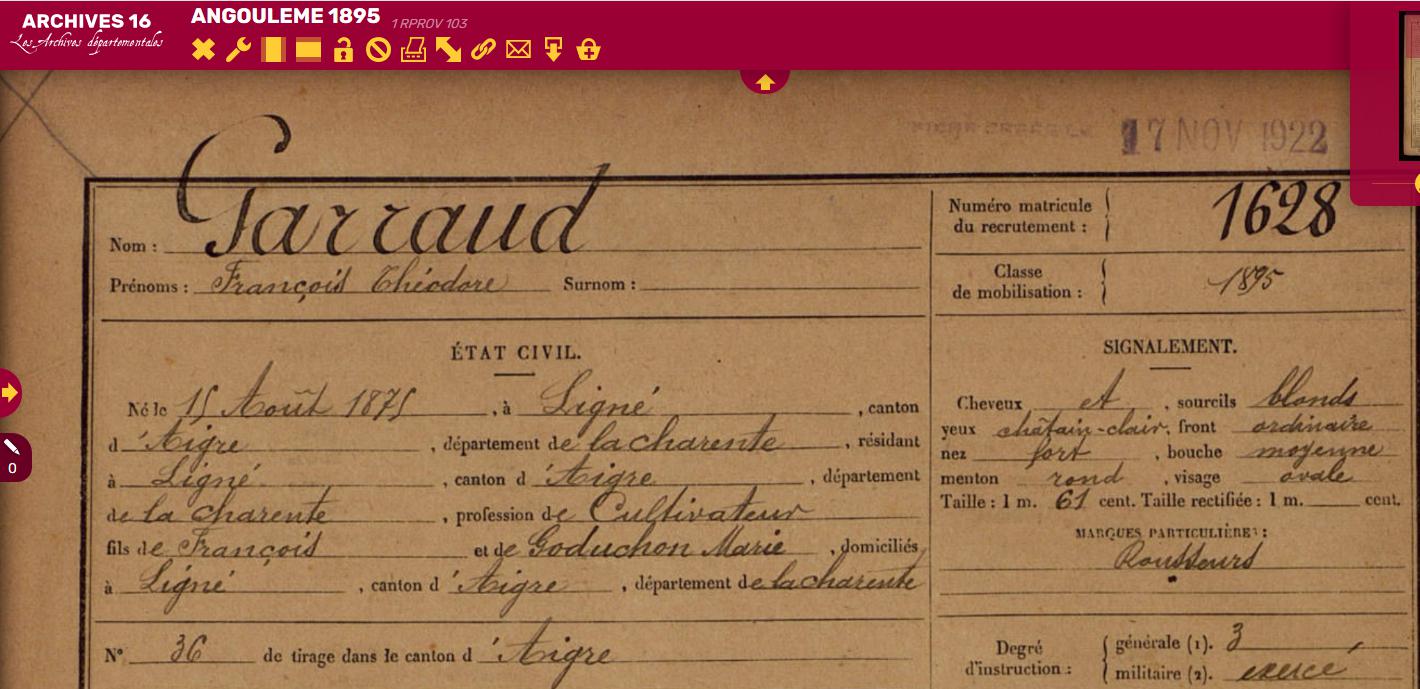 ARCHIVES 16
Les Archives départementales
ANGOULEME 1895 1 RPROV 103
17 NOV 1922
Nom : Garraud
Prénoms : François Théodore Surnom :
Numéro matricule du recrutement : 1628
Classe de mobilisation : 1895
ÉTAT CIVIL.
Né le 15 Août 1875, à Ligné, canton
d'Aigre, département de la charente, résidant
à Ligné, canton d'Aigre, département
de la charente, profession de Cultivateur
fils de François et de Goduchon Marie, domiciliés
à Ligné, canton d'Aigre, département de la charente
N° 36 de tirage dans le canton d'Aigre
SIGNALEMENT.
Cheveux et, sourcils blonds
yeux châtain-clair, front ordinaire
nez fort, bouche moyenne
menton rond, visage ovale
Taille : 1 m. 61 cent. Taille rectifiée : 1 m. cent.
MARQUES PARTICULIÈRES :
Rousseurs
Degré d'instruction : générale (1). 3
militaire (2). exercé
0